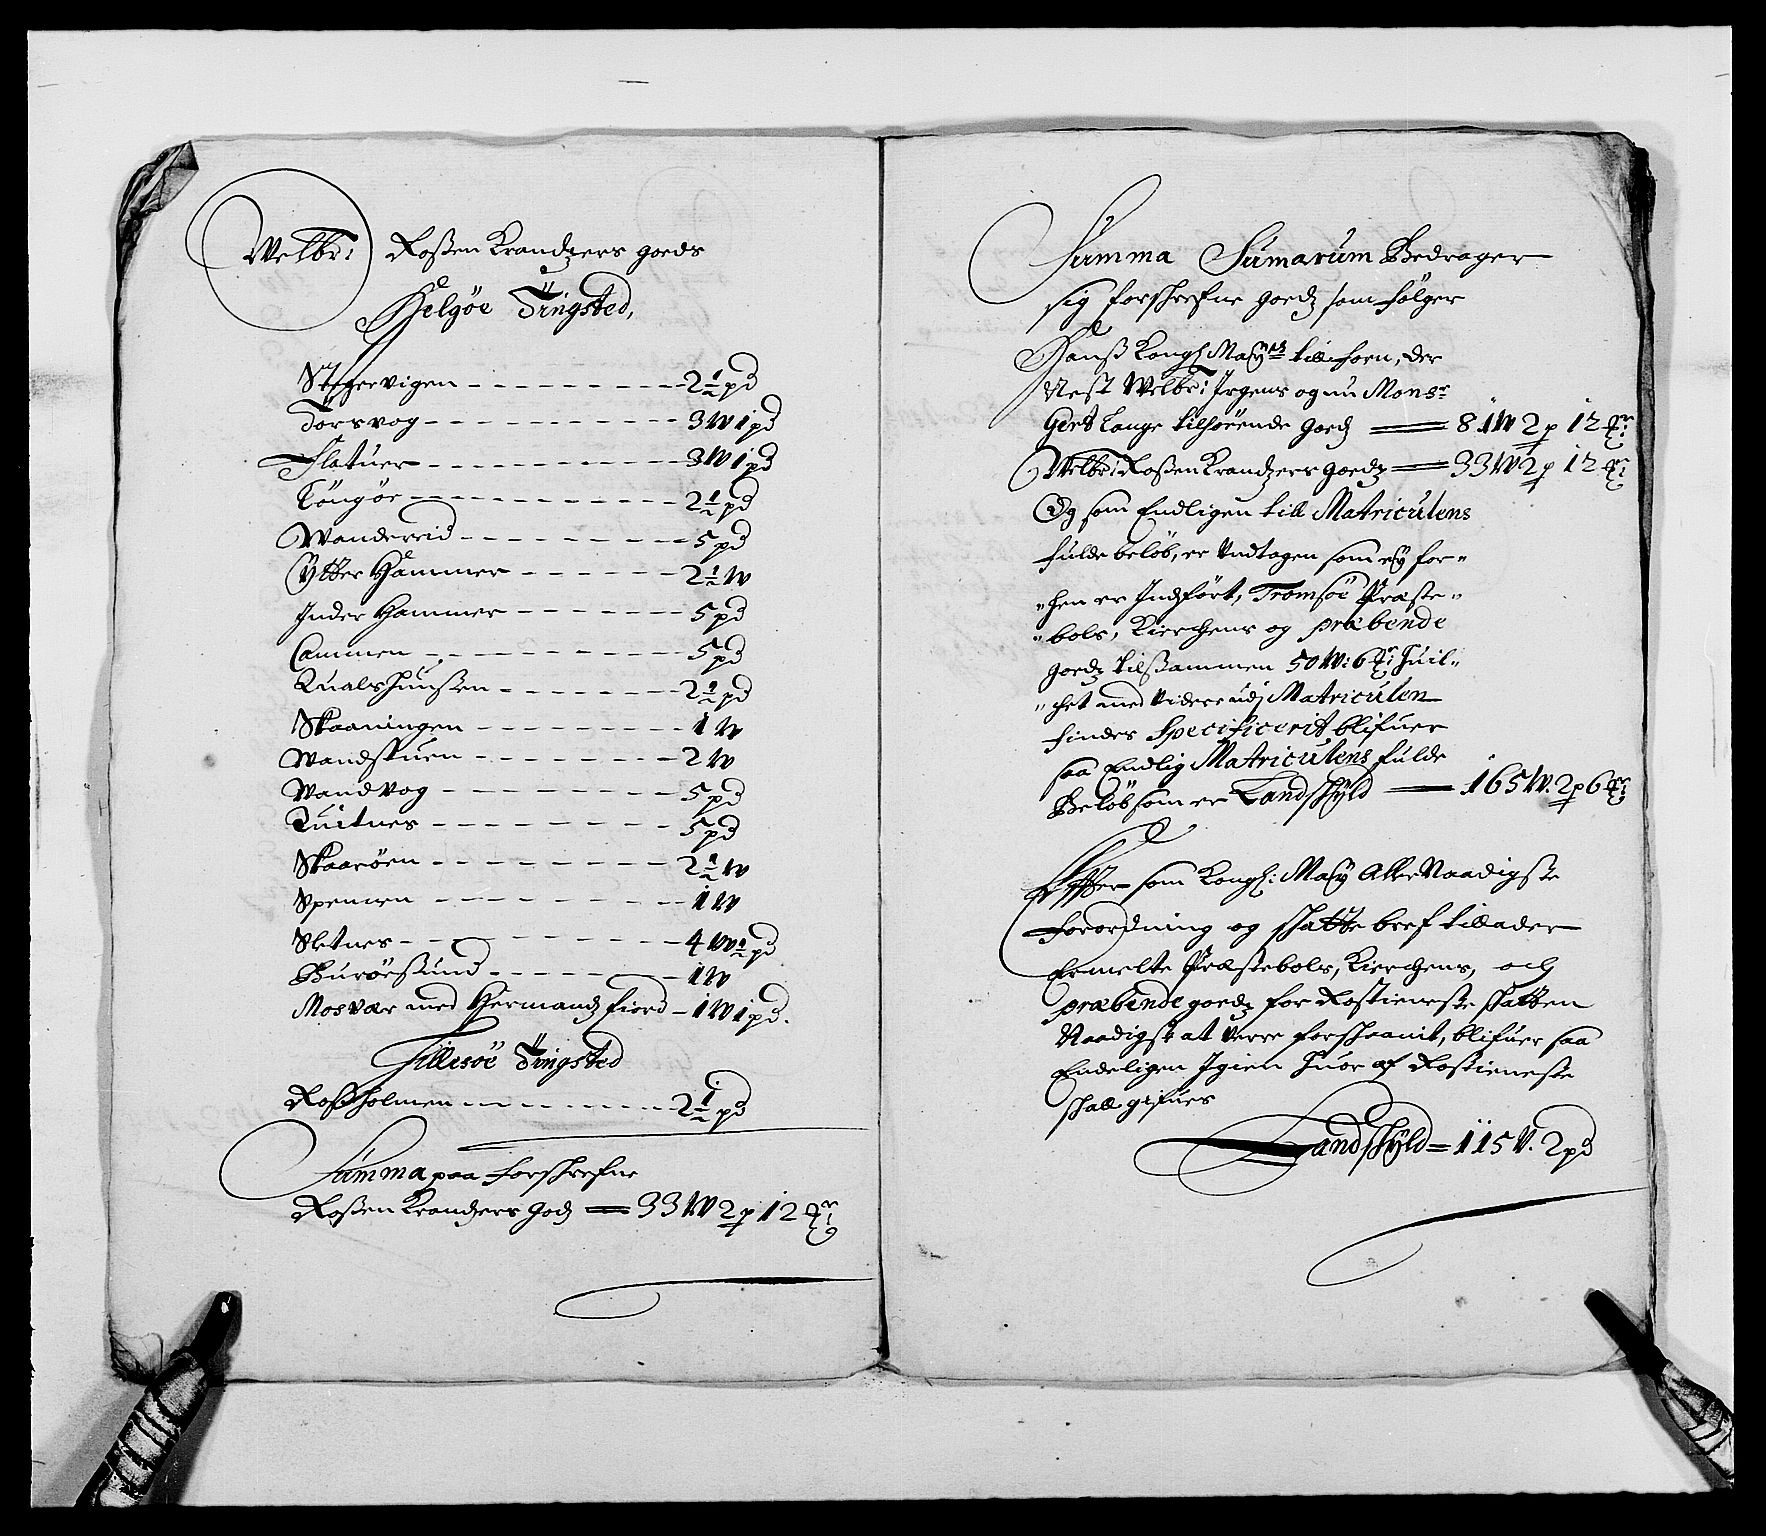 Welbr: Roßen Krandzers goeds
Helgöe Tingsted,
Stegervigen - - - - - - - - - - 2½ pd
Torsvog - - - - - - - - - - - 3 W 1 pd
Flatuer - - - - - - - - - - - 3 W 1 pd
Töngöe - - - - - - - - - - - 2½ pd
Wanderrid - - - - - - - - - 5 pd
Ytter Hammer - - - - - - 2½ W
Inder Hammer - - - - - - - 5 pd
Cammen - - - - - - - - - - 5 pd
Qualshunßen - - - - - - - - 2½ pd
Skaaningen - - - - - - - - - 1 W
Wandstuen - - - - - - - - 2 W
Wandvog - - - - - - - - - 5 pd
Quitnes - - - - - - - - - - 5 pd
Skaaröen - - - - - - - - - 2½ W
Spenen - - - - - - - - - - 1 W
Sletnes - - - - - - - - - - 4 W ½ pd
Buröesund - - - - - - - 1 W
Mosvær med Hermandz fiord - 1 W 1 pd.
Tillesöe Tingsted
Roßholmen - - - - - - - - - 2½ pd
Summa paa forschrefne
Roßen Krandzers godz = 33 W 2 p 12 Mr:
Summa Sumarum Bedrager
sig forschrefne goedz som fölger
Hanß Kongl: May:ts tillforn, der
Nest Welbr: Irgens og nu Monsr
Gert Lange tilhörende goedz = 81 W 2 p 12 Mr:
Welbr: Roßen Krandzers goedz = 33 W 2 p 12 Mr:
Og som Endligen till Matriculens
fulde beløb, er Undtagen som ey for-
-hen er Indfört, Tromsöe Præste-
-bols, Kierchens og præbende
goedz tilsammen 50 W: 6 Mr: huil-
-chet med videre udj Matriculen
findes Specificerit, blifuer
saa Endlig Matriculens fulde
Beløb som er Landschyld = 165 W. 2 p 6 Mr:
Effter som Kongl: May Aller Naadigste
forordning og schatte bref tillader
Ermelte Præstebols, Kierchens, och
præbende goedz for Rostieneste schatten
Naadigst at verre forschaanit, blifuer saa
Endeligen Igien huor af Rostieneste
schall gifues
Landschyld = 115 W. 2 pd